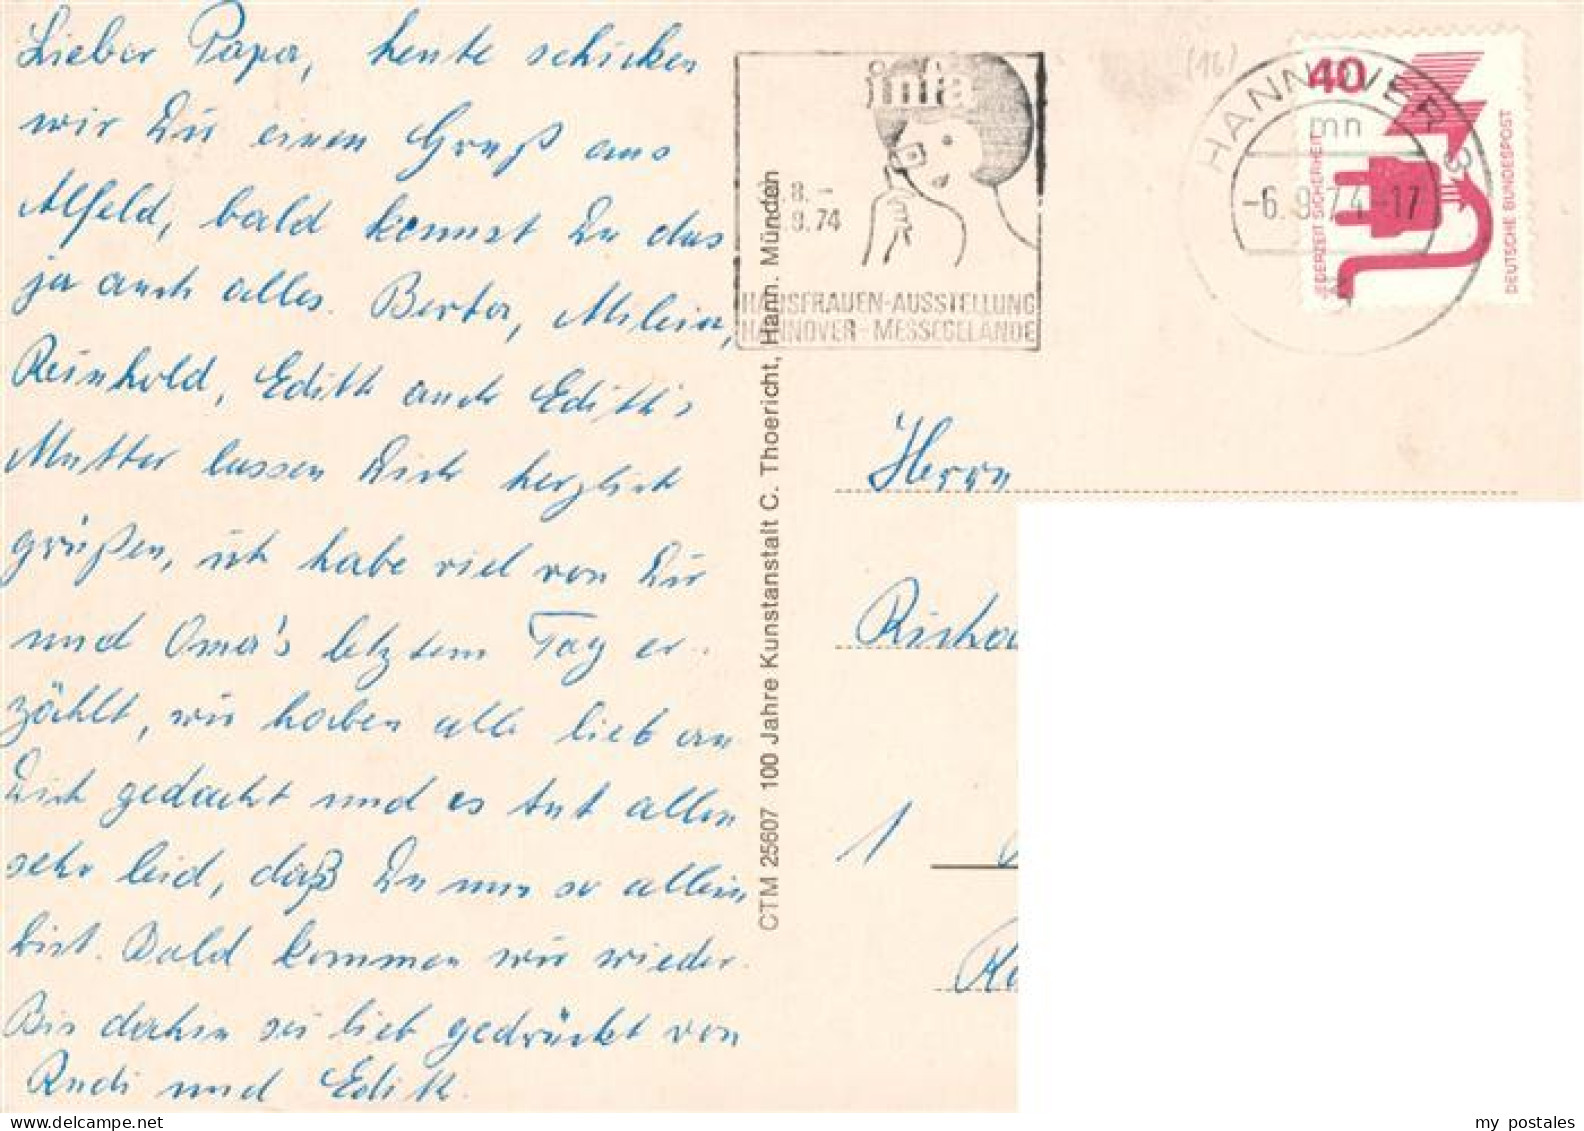 Lieber Papa, heute schicken
wir Dir einen Gruß aus
Alfeld, bald kennst Du das
ja auch alles. Berta,
Reinhold, Edith auch Edith's
Mutter lassen Dich herzlich
grüßen, ich habe viel von Dir
und Oma's letztem Tag er-
zählt, wir haben alle lieb an
Dich gedacht und es tut allen
sehr leid, daß Du nun so allein
bist. Bald kommen wir wieder.
Bis dahin sei lieb gedrückt von
Rudi und Edith.
CTM 25607 100 Jahre Kunstanstalt C. Thoericht, Hann. Münden
infa
.8. –
.9.74
HAUSFRAUEN-AUSSTELLUNG
HANNOVER-MESSEGELÄNDE
(16)
HANNOVER 3
mn
-6.9.74-17
40
JEDERZEIT SICHERHEIT
DEUTSCHE BUNDESPOST
Herrn
Richa
1
my postales